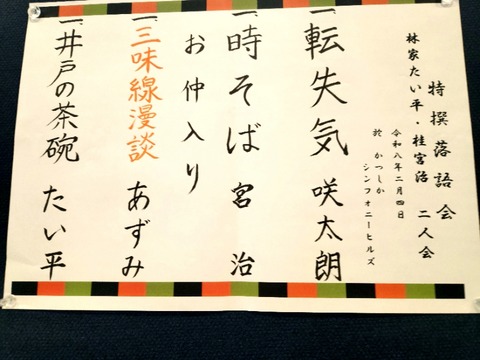 特撰落語会
林家たい平・桂宮治 二人会
令和八年二月四日
於 かつしか
シンフォニーヒルズ
一、転失気 咲太朗
一、時そば 宮治
お仲入り
一、三味線漫談 あずみ
一、井戸の茶碗 たい平